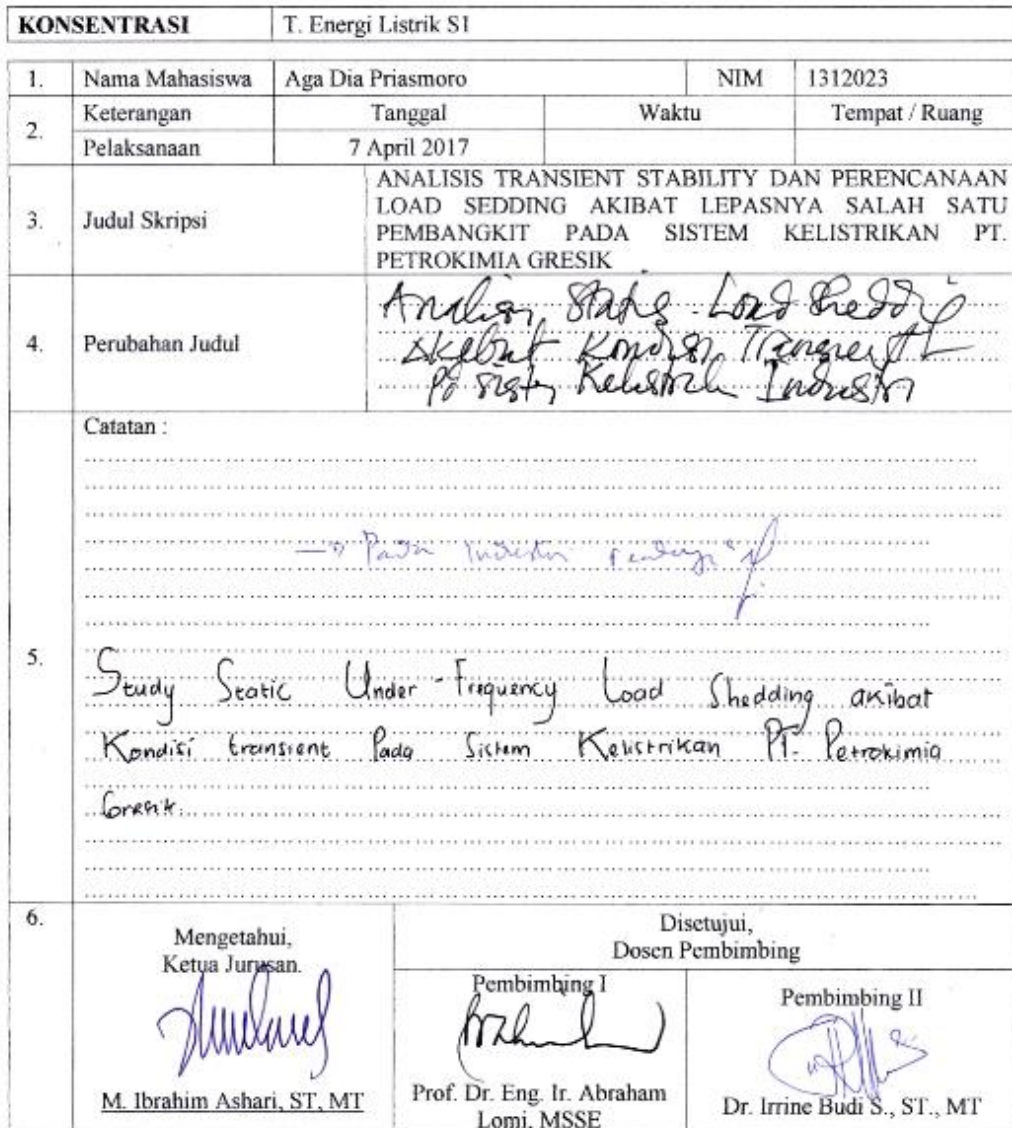 KONSENTRASI T. Energi Listrik S1
1. Nama Mahasiswa Aga Dia Priasmoro NIM 1312023
2. Keterangan Tanggal Waktu Tempat / Ruang
Pelaksanaan 7 April 2017
3. Judul Skripsi
ANALISIS TRANSIENT STABILITY DAN PERENCANAAN
LOAD SEDDING AKIBAT LEPASNYA SALAH SATU
PEMBANGKIT PADA SISTEM KELISTRIKAN PT.
PETROKIMIA GRESIK
4. Perubahan Judul
Load Sheddi
Kondisi Transient
Industri
5. Catatan :
Pada Industri
Study Static Under-Frequency Load Shedding akibat
Kondisi transient Pada Sistem Kelistrikan PT. Petrokimia
Gresik.
6. Mengetahui,
Ketua Jurusan.
M. Ibrahim Ashari, ST, MT
Disetujui,
Dosen Pembimbing
Pembimbing I
Prof. Dr. Eng. Ir. Abraham
Lomi, MSSE
Pembimbing II
Dr. Irrine Budi S., ST., MT